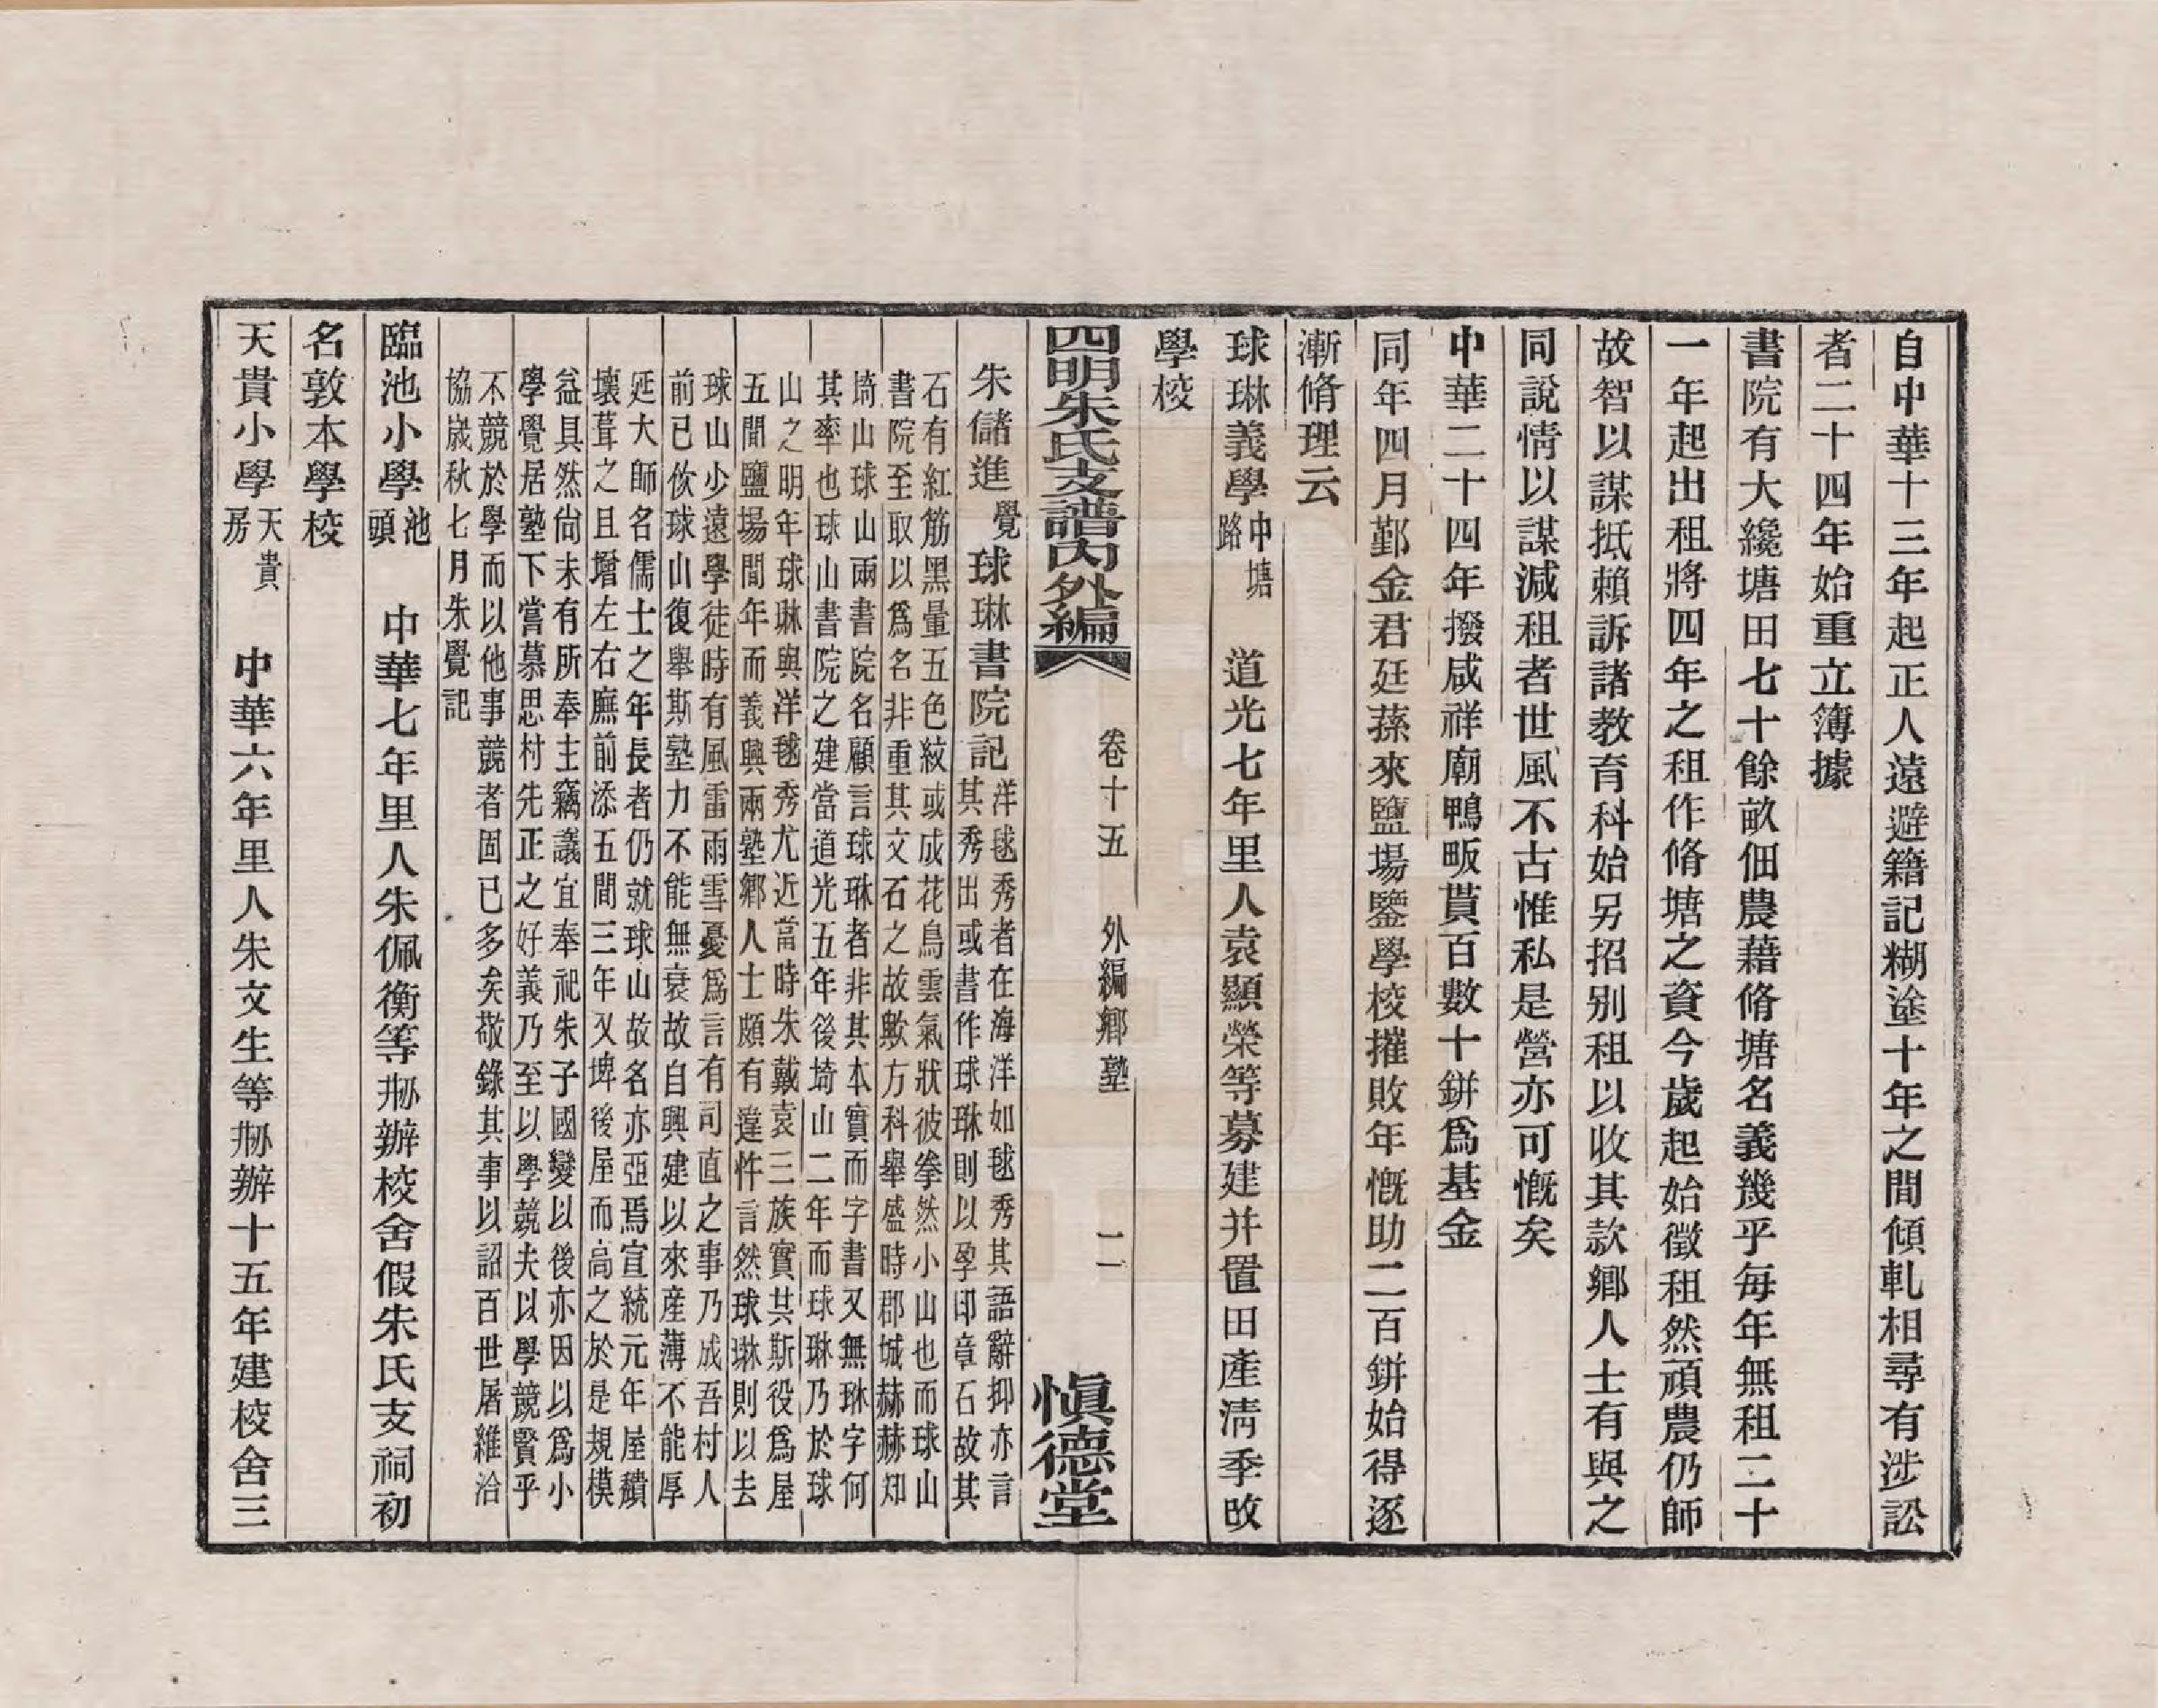 自中華十三年起正人遠避籍記糊塗十年之間傾軋相尋有涉訟
者二十四年始重立簿據
書院有大纔塘田七十餘畝佃農藉脩塘名義幾乎每年無租二十
一年起出租將四年之租作脩塘之資今歲起始徵租然頑農仍師
故智以謀抵賴訴諸教育科始另招别租以收其款鄉人士有與之
同說情以謀減租者世風不古惟私是營亦可慨矣
中華二十四年撥咸祥廟鴨畈貰百數十鉼爲基金
同年四月鄞金君廷蓀來鹽場鑒學校摧敗年慨助二百鉼始得逐
漸脩理云
球琳義學中塘路　道光七年里人袁顯榮等募建并置田產淸季改
學校
四明朱氏支譜内外編　卷十五　外編鄉塾　二　愼德堂
朱儲進覺球琳書院記
洋毬秀者在海洋如毬秀其語辭抑亦言
其秀出或書作球琳則以孕印章石故其
石有紅筋黑暈五色紋或成花鳥雲氣狀彼拳然小山也而球山
書院至取以爲名非重其文石之故歟方科舉盛時郡城赫赫知
埼山球山兩書院名顧言球琳者非其本實而字書又無琳字何
其率也球山書院之建當道光五年後埼山二年而球琳乃於球
山之明年球琳與洋毬秀尤近當時朱戴袁三族實其斯役爲屋
五間鹽場間年而義興兩塾鄉人士頗有違忤言然球琳則以去
球山少遠學徒時有風雷雨雪憂爲言有司直之事乃成吾村人
前已佽球山復舉斯塾力不能無衰故自興建以來產薄不能厚
延大師名儒士之年長者仍就球山故名亦亞焉宣統元年屋穨
壞葺之且增左右廡前添五間三年又埤後屋而高之於是規模
益具然尙未有所奉主竊議宜奉祀朱子國變以後亦因以爲小
學覺居塾下嘗慕思村先正之好義乃至以學競夫以學競賢乎
不競於學而以他事競者固已多矣敬錄其事以詔百世屠維洽
協歲秋七月朱覺記
臨池小學池頭　中華七年里人朱佩衡等刱辦校舍假朱氏支祠初
名敦本學校
天貴小學天貴房　中華六年里人朱文生等刱辦十五年建校舍三